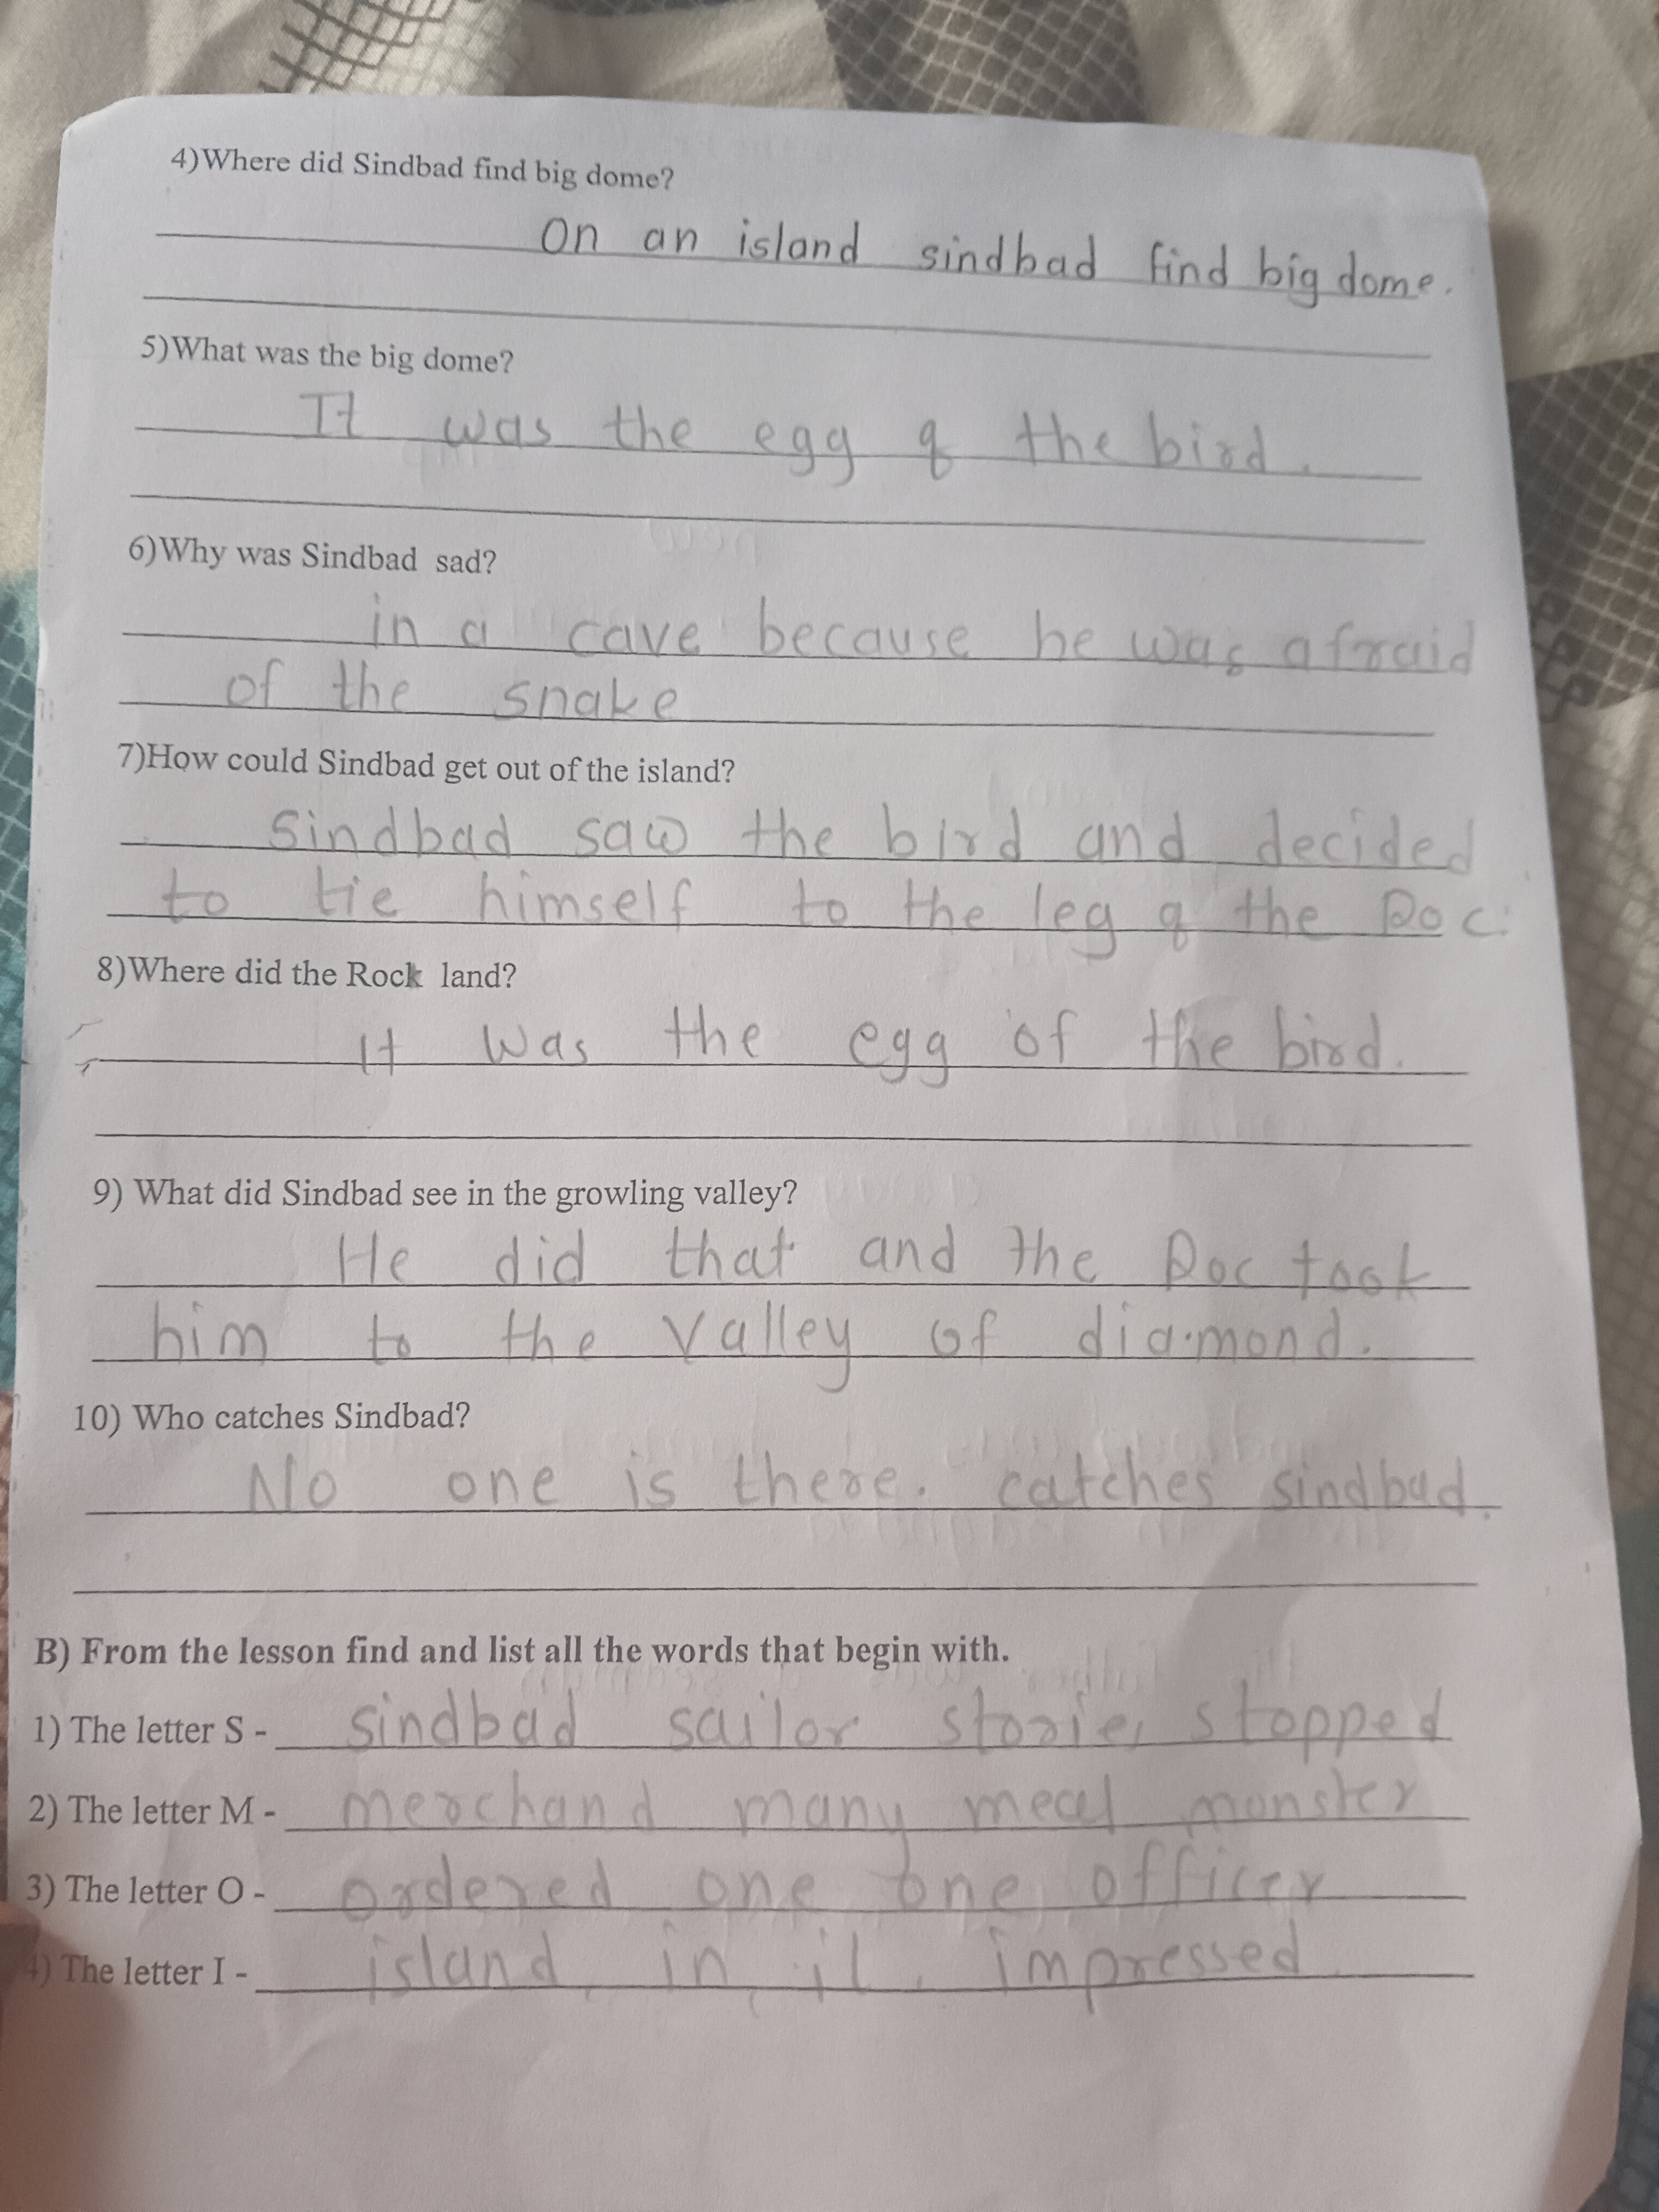 4)Where did Sindbad find big dome?
On an island sindbad find big dome.
5)What was the big dome?
It was the egg of the bird.
6)Why was Sindbad sad?
in a cave because he was afraid
of the snake
7)How could Sindbad get out of the island?
Sindbad saw the bird and decided
to tie himself to the leg of the Roc.
8)Where did the Rock land?
It was the egg of the bird.
9) What did Sindbad see in the growling valley?
He did that and the Roc took
him to the valley of diamond.
10) Who catches Sindbad?
No one is there. catches sindbad.
B) From the lesson find and list all the words that begin with.
1) The letter S - sindbad sailor stories stopped
2) The letter M - merchand many meal monster
3) The letter O - ordered one one officer
4) The letter I - island in it impressed